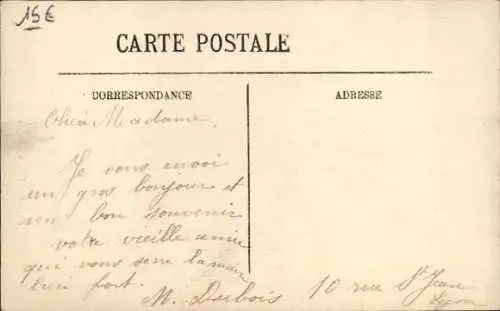 15€
CARTE POSTALE
CORRESPONDANCE
ADRESSE
Chère Madame,
Je vous envoi
un gros bonjour et
un bon souvenir
votre vieille amie
qui vous serre la main
bien fort.
M. Dubois 10 rue St Jean
Lyon